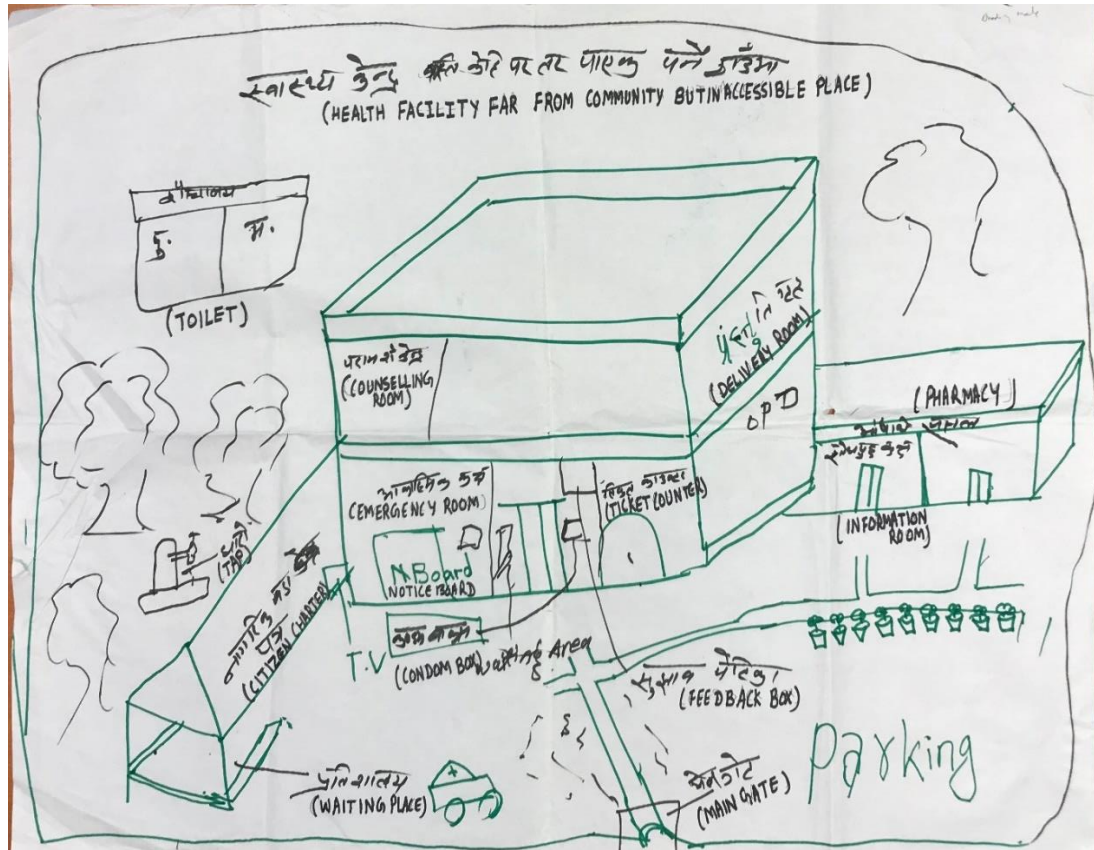 स्वास्थ्य केन्द्र
(HEALTH FACILITY FAR FROM COMMUNITY BUTINACCESSIBLE PLACE)
शौचालय
म.
(TOILET)
परामर्श केन्द्र
(COUNSELLING
ROOM)
(DELIVERY ROOM)
OPD
(PHARMACY)
(INFORMATION
ROOM)
आकस्मिक कक्ष
(EMERGENCY ROOM)
टिकट काउन्टर
(TICKET COUNTER)
N.Board
NOTICE BOARD
(TAP)
नागरिक वडा पत्र
(CITIZEN CHARTER)
T.V
(CONDOM BOX)
Waiting Area
सुझाव पेटिका
(FEEDBACK BOX)
Parking
(WAITING PLACE)
मेन गेट
(MAIN GATE)